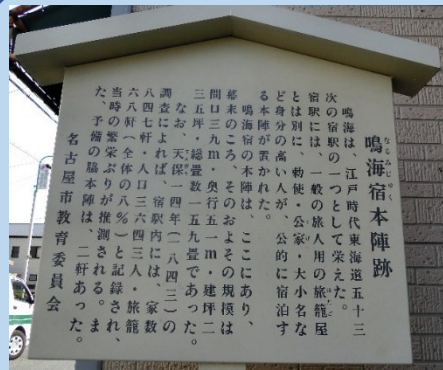 鳴海宿本陣跡
なるみじゅく
鳴海は、江戸時代東海道五十三
次の宿駅の一つとして栄えた。
宿駅には、一般の旅人用の旅籠屋
とは別に、勅使・公家・大小名な
ど身分の高い人が、公的に宿泊す
る本陣が置かれた。
鳴海宿の本陣は、ここにあり、
幕末のころ、そのおよその規模は
間口三九m・奥行五一m・建坪二
三五坪・総畳数一五九畳であった。
なお、天保一四年(一八四三)の
調査によれば、宿駅内には、家数
八四七軒・人口三六四三人・旅籠
六八軒(全体の八%)と記録され、
当時の繁栄ぶりが推測される。ま
た、予備の脇本陣は、二軒あった。
名古屋市教育委員会